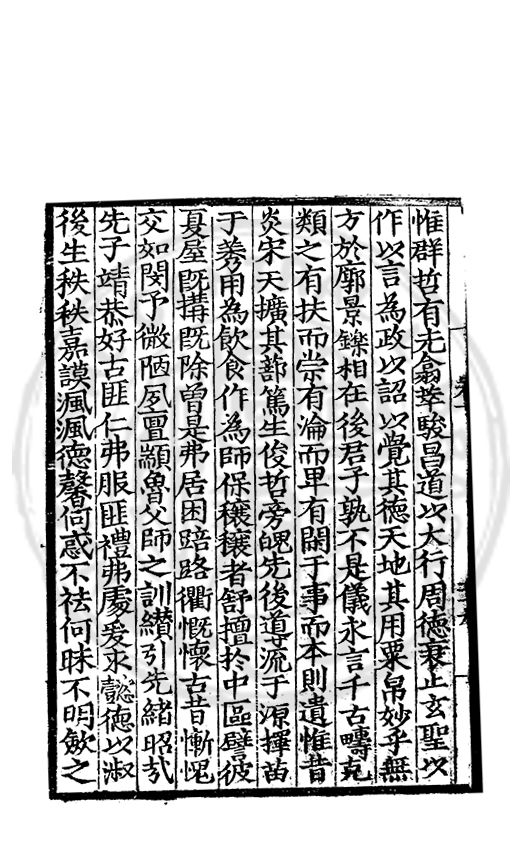 惟群哲有先翕萃駿昌道以大行周德衰止玄聖以
作以言為政以詔以覺其德天地其用粟帛妙乎無
方於廓景鑠相在後君子孰不是儀永言千古疇克
類之有扶而崇有淪而畀有闕于事而本則遺惟昔
炎宋天擴其蔀篤生俊哲旁魄先後導流于源擇苗
于莠用為飲食作為師保穰穰者舒擅於中區譬彼
夏屋既搆既除曾是弗居困踣路衢慨懷古昔慚愧
交如閔予微陋夙亶顓魯父師之訓纘引先緒昭哉
先子靖恭好古匪仁弗服匪禮弗處爰求懿德以淑
後生秩秩嘉謨渢渢德馨何惑不祛何昧不明斂之